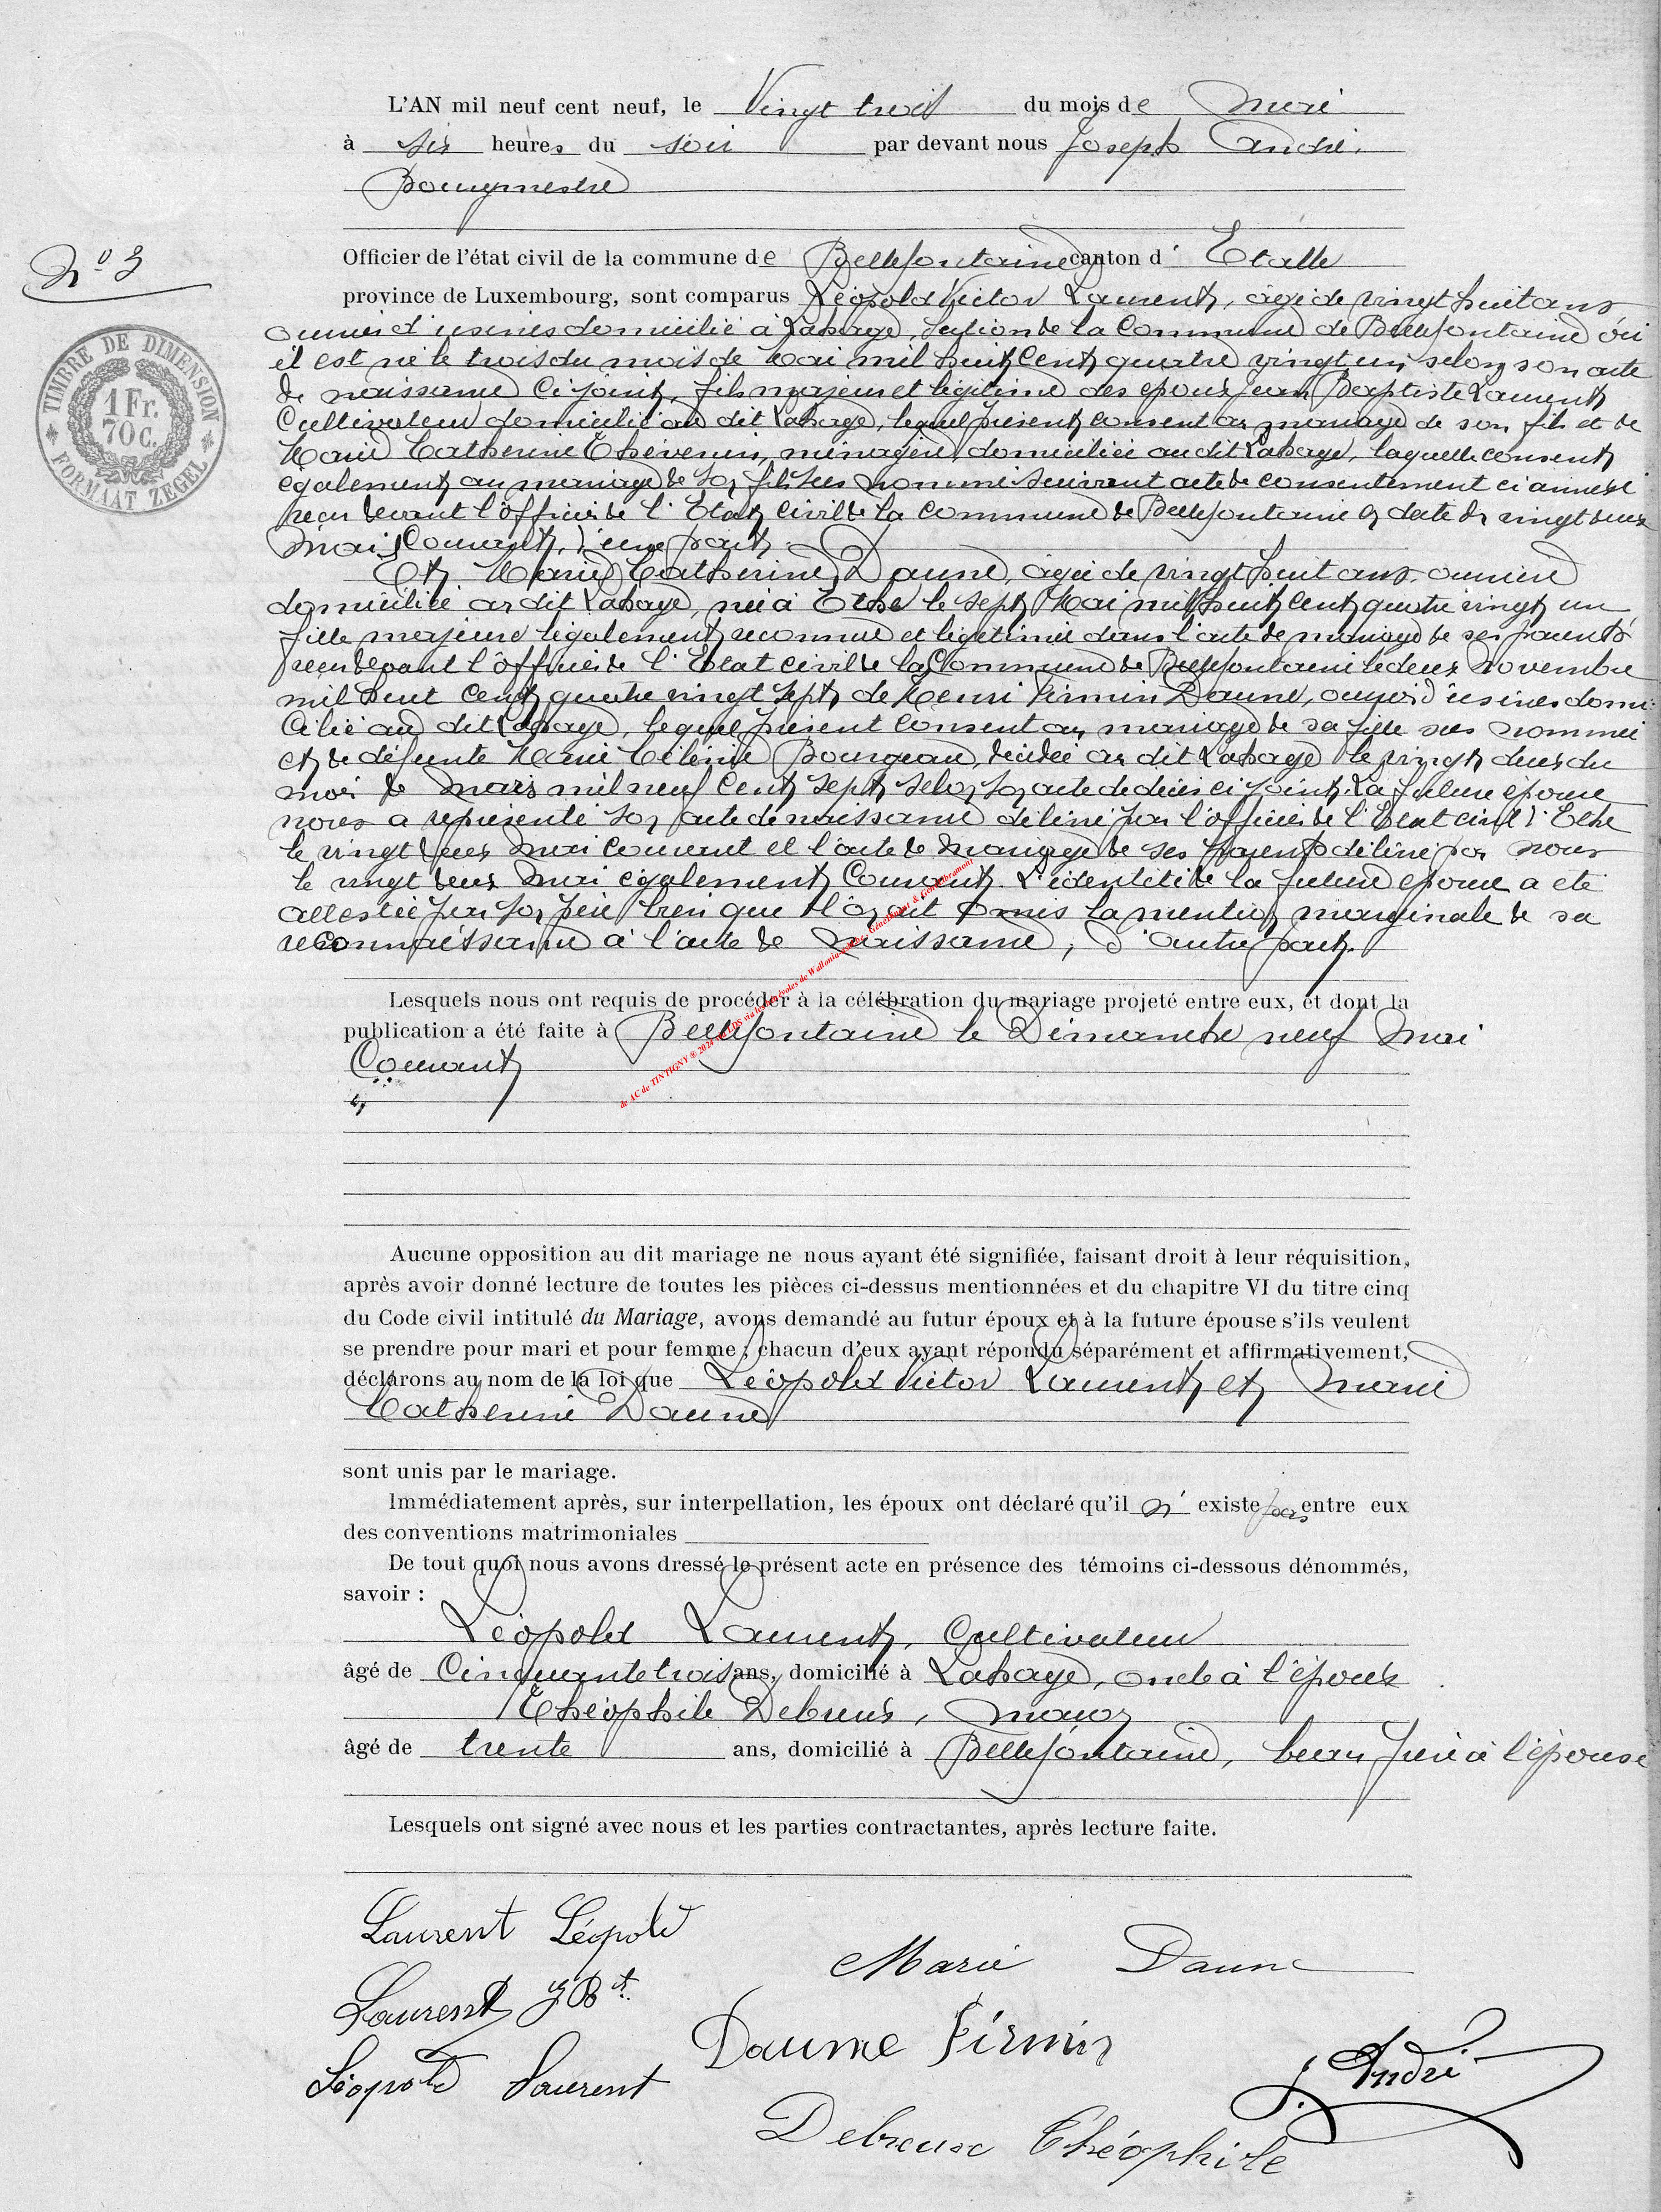 L'AN mil neuf cent neuf, le Vingt trois du mois de mai
à six heures du soir par devant nous Joseph André,
Bourgmestre
Officier de l'état civil de la commune de Bellefontaine canton d' Etalle
N° 3
province de Luxembourg, sont comparus Léopold Victor Laurent, âgé de vingt huit ans
ouvrier d'usines domicilié à Lahage, section de la Commune de Bellefontaine où
il est né le trois du mois de Mai mil huit cent quatre vingt un, selon son acte
de naissance ci joint, fils majeur et légitime des époux Jean Baptiste Laurent
Cultivateur domicilié au dit Lahage, lequel présent consent au mariage de son fils et de
Marie Catherine Thévenin, ménagère, domiciliée au dit Lahage, laquelle consent
également au mariage de son fils sus nommé suivant acte de consentement ci annexé
reçu devant l'officier de l'Etat civil de la Commune de Bellefontaine en date du vingt deux
Mai Courant, d'une part.
Et Marie Catherine Daune, âgée de vingt huit ans, ouvrière
domiciliée au dit Lahage, née à Ethe le sept Mai mil huit cent quatre vingt un
fille majeure légalement reconnue et légitimée dans l'acte de mariage de ses parents
reçu devant l'officier de l'Etat civil de la Commune de Bellefontaine le deux Novembre
mil huit cent quatre vingt sept, de Henri Firmin Daune, ouvrier d'usines domi-
cilié au dit Lahage, lequel présent consent au mariage de sa fille sus nommée
et de défunte Marie Célénie Bourgeau, décédée au dit Lahage le vingt deux du
mois de mars mil neuf cent sept selon son acte de décès ci joint. La future épouse
nous a représenté son acte de naissance délivré par l'officier de l'Etat civil d'Ethe
le vingt deux mai courant et l'acte de mariage de ses parents délivré par nous
le vingt deux mai également Courant. L'identité de la future épouse a été
attestée par son père bien que l'on ait omis la mention marginale de sa
reconnaissance à l'acte de naissance, d'autre part.
Lesquels nous ont requis de procéder à la célébration du mariage projeté entre eux, et dont la
publication a été faite à Bellefontaine le Dimanche neuf mai
Courant
TIMBRE DE DIMENSION
1 Fr.
70 C.
FORMAAT ZEGEL
de AC de TINTIGNY ® 2024 via LDS via les bénévoles de Wallonia
Aucune opposition au dit mariage ne nous ayant été signifiée, faisant droit à leur réquisition,
après avoir donné lecture de toutes les pièces ci-dessus mentionnées et du chapitre VI du titre cinq
du Code civil intitulé du Mariage, avons demandé au futur époux et à la future épouse s'ils veulent
se prendre pour mari et pour femme ; chacun d'eux ayant répondu séparément et affirmativement,
déclarons au nom de la loi que Léopold Victor Laurent et Marie
Catherine Daune
sont unis par le mariage.
Immédiatement après, sur interpellation, les époux ont déclaré qu'il n' existe pas entre eux
des conventions matrimoniales
De tout quoi nous avons dressé le présent acte en présence des témoins ci-dessous dénommés,
savoir :
Léopold Laurent, Cultivateur
âgé de Cinquante trois ans, domicilié à Lahage, oncle à l'époux
Théophile Debreux, maçon
âgé de trente ans, domicilié à Bellefontaine, beau frère à l'épouse
Lesquels ont signé avec nous et les parties contractantes, après lecture faite.
Laurent Léopold
Marie Daune
Laurent JBt
Daune Firmin
J. André
Léopold Laurent
Debreux Théophile